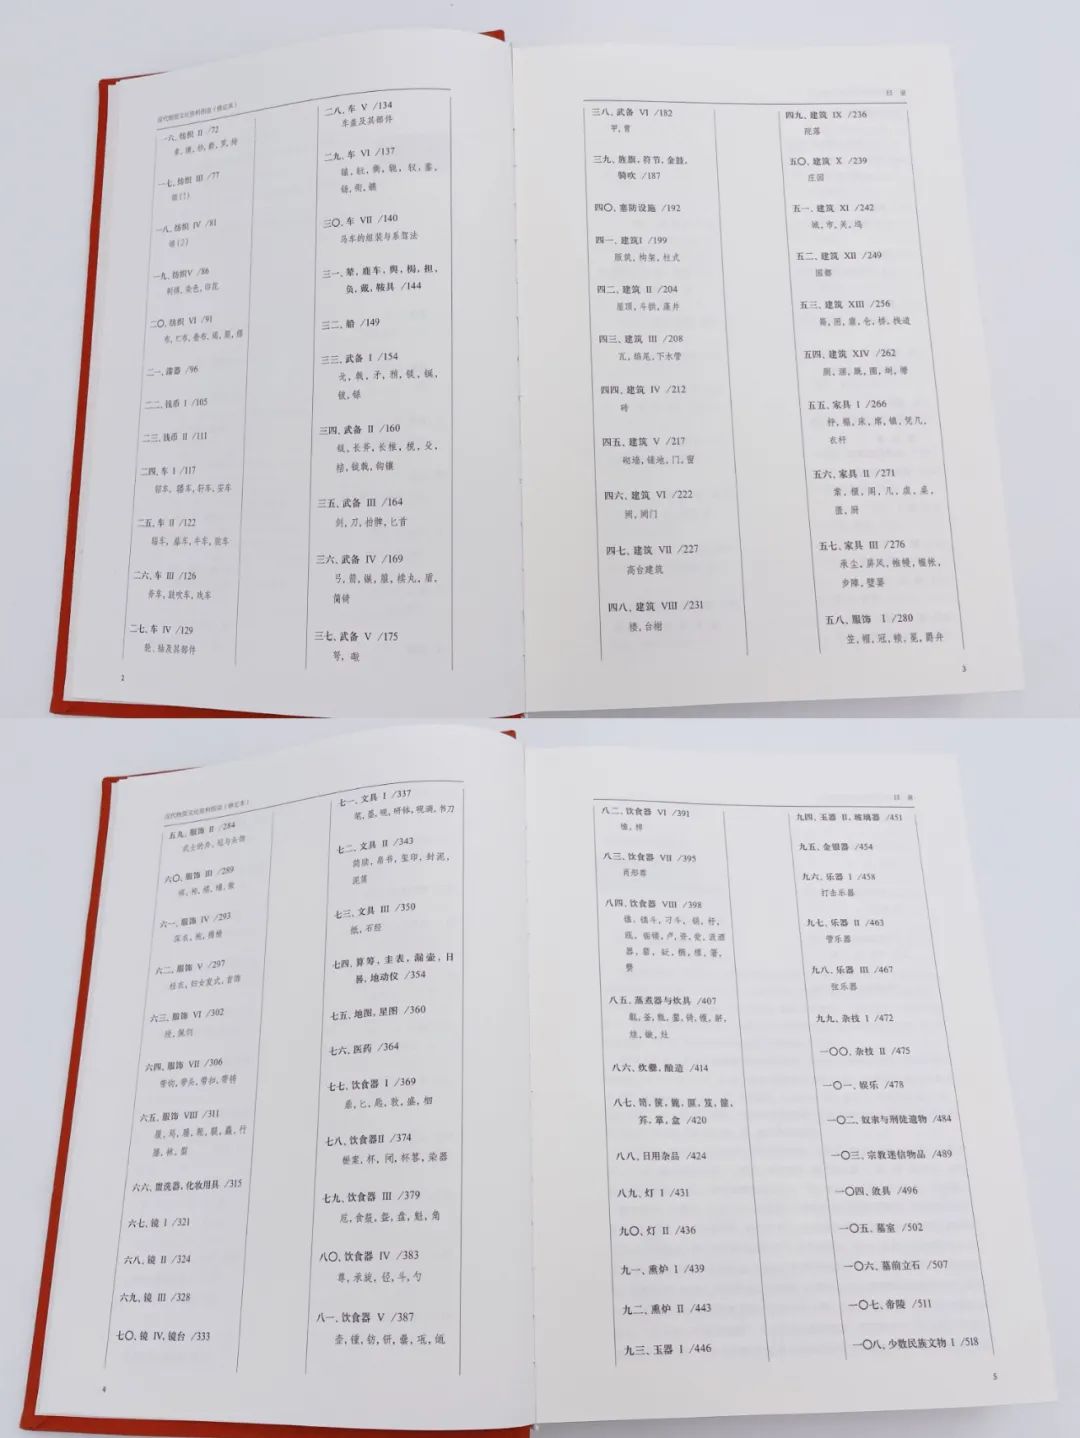 汉代物质文化资料图说（修定本）
一六、纺织 II /72
一七、纺织 III /77
锦(1)
一八、纺织 IV /81
锦(2)
一九、纺织V /86
刺绣，染色，印花
二〇、纺织 VI /91
二一、漆器 /96
二二、钱币 I /105
二三、钱币 II /111
二四、车 I /117
轺车，轩车，安车
二五、车 II /122
辎车，牛车
二六、车 III /126
斧车，鼓吹车，戏车
二七、车 IV /129
轮、轴及其部件
2
二八、车 V /134
车盖及其部件
二九、车 VI /137
三〇、车 VII /140
马车的组装与系驾法
三一、辇，鹿车，舆，梮，担，
负，戴，鞍具 /144
三二、船 /149
三三、武备 I /154
三四、武备 II /160
钺，长斧，长椎，
钩镶
三五、武备 III /164
剑，刀，拍髀，匕首
三六、武备 IV /169
弓，箭，
盾，
三七、武备 V /175
弩，
目 录
三八、武备 VI /182
甲，胄
三九、旌旗，符节，金鼓，
骑吹 /187
四〇、塞防设施 /192
四一、建筑I /199
版筑，构架，柱式
四二、建筑 II /204
屋顶，斗拱，藻井
四三、建筑 III /208
瓦，鸱尾，下水管
四四、建筑 IV /212
砖
四五、建筑 V /217
砌墙，铺地，门，窗
四六、建筑 VI /222
阙，阙门
四七、建筑 VII /227
高台建筑
四八、建筑 VIII /231
楼，台榭
四九、建筑 IX /236
院落
五〇、建筑 X /239
庄园
五一、建筑 XI /242
城，市，关，坞
五二、建筑 XII /249
囿
五三、建筑 XIII /256
仓，桥，栈道
五四、建筑 XIV /262
五五、家具 I /266
枰，榻，床，席，镇，凭几，
衣杆
五六、家具 II /271
五七、家具 III /276
承尘，屏风，帷幔，幄帐，
步障，壁翣
五八、服饰 I /280
笠，帽，冠，帻，冕，爵弁
3
汉代物质文化资料图说（修定本）
五九、服饰 II /284
武士的弁、冠与头饰
六〇、服饰 III /289
六一、服饰 IV /293
深衣，袍，襜褕
六二、服饰 V /297
袿衣，妇女发式，首饰
六三、服饰 VI /302
绶，佩剑
六四、服饰 VII /306
带钩，带头，带扣，带鐍
六五、服饰 VIII /311
六六、盥洗器，化妆用具 /315
六七、镜 I /321
六八、镜 II /324
六九、镜 III /328
七〇、镜 IV，镜台 /333
4
七一、文具 I /337
笔，墨，砚，研钵，砚滴，书刀
七二、文具 II /343
简牍，帛书，玺印，封泥，
泥筩
七三、文具 III /350
纸，石经
七四、算筹，圭表，漏壶，日
晷，地动仪 /354
七五、地图，星图 /360
七六、医药 /364
七七、饮食器 I /369
鼎，匕，
七八、饮食器II /374
杯，
染器
七九、饮食器 III /379
卮，食盘，盌，盘，魁，角
八〇、饮食器 IV /383
尊，承旋，径，斗，勺
八一、饮食器 V /387
壶，锺，钫，
目 录
八二、饮食器 VI /391
八三、饮食器 VII /395
肖形尊
八四、饮食器 VIII /398
八五、蒸煮器与炊具 /407
八六、炊爨，酿造 /414
八七、笥，箧，簏，匪，笈，
盒 /420
八八、日用杂品 /424
八九、灯 I /431
九〇、灯 II /436
九一、熏炉 I /439
九二、熏炉 II /443
九三、玉器 I /446
九四、玉器 II，玻璃器 /451
九五、金银器 /454
九六、乐器 I /458
打击乐器
九七、乐器 II /463
管乐器
九八、乐器 III /467
弦乐器
九九、杂技 I /472
一〇〇、杂技 II /475
一〇一、娱乐 /478
一〇二、奴隶与刑徒遗物 /484
一〇三、宗教迷信物品 /489
一〇四、敛具 /496
一〇五、墓室 /502
一〇六、墓前立石 /507
一〇七、帝陵 /511
一〇八、少数民族文物 I /518
5